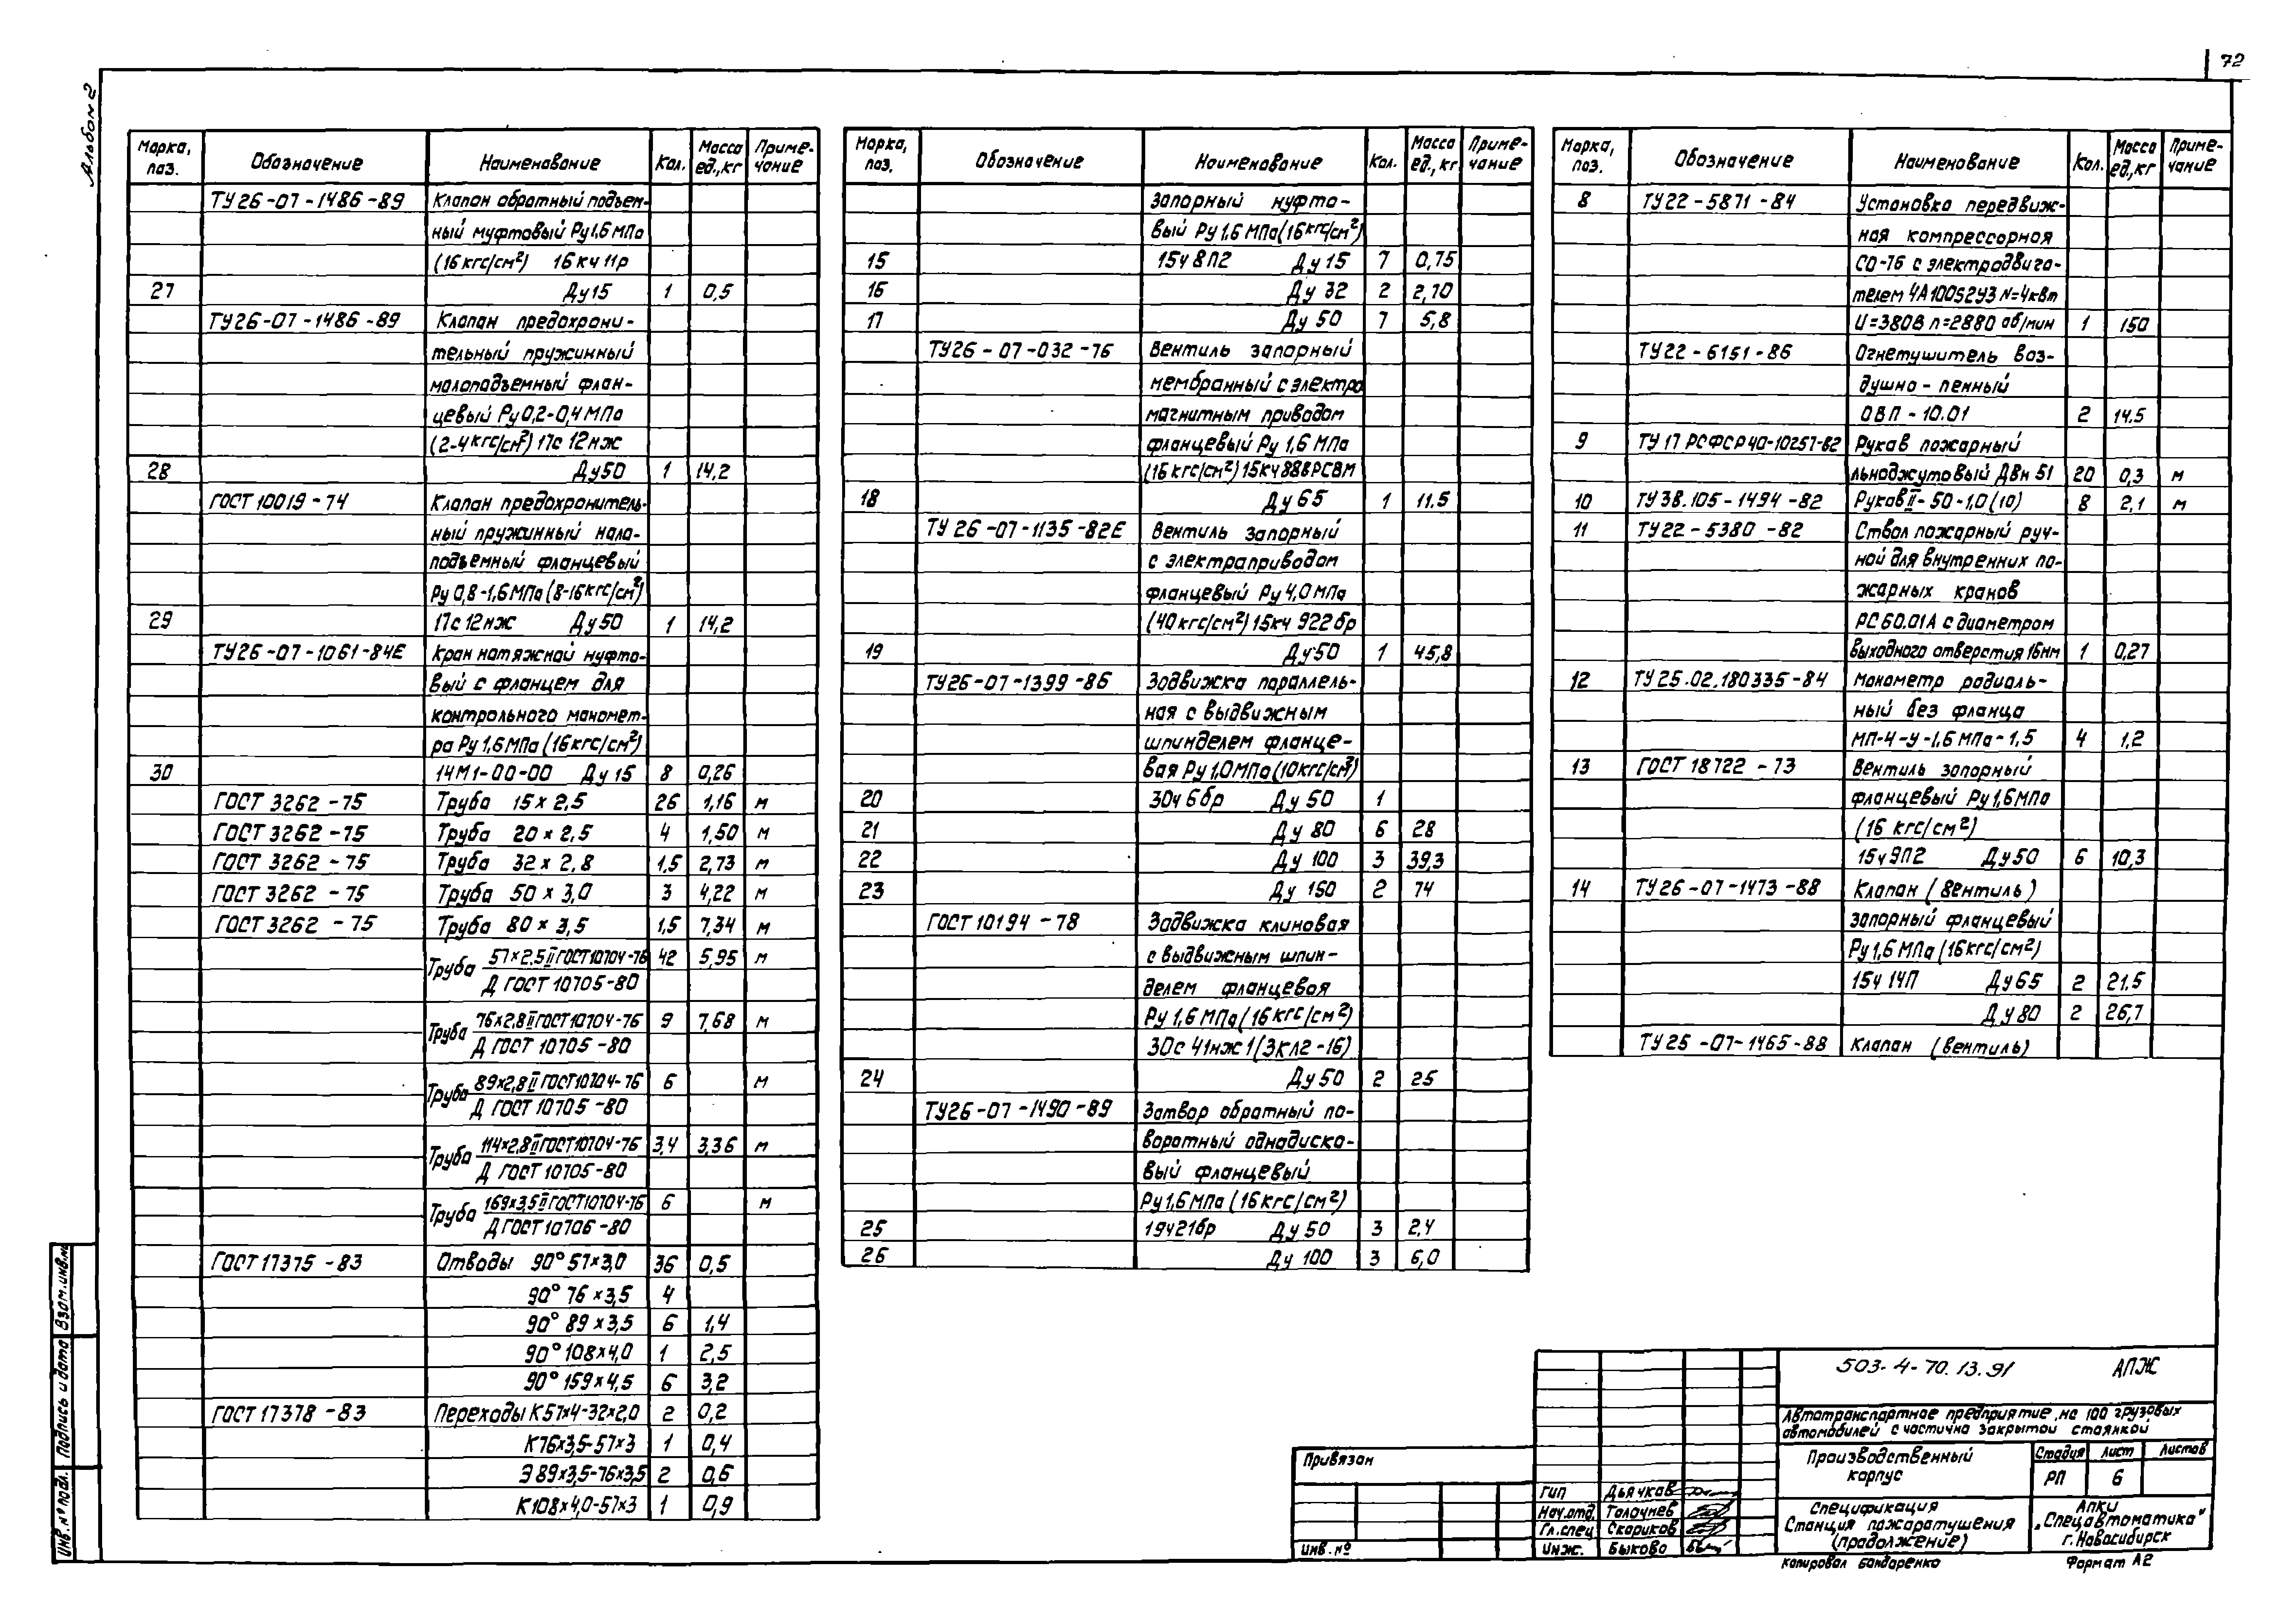 72
Альбом 2
Марка, поз. Обозначение Наименование Кол. Масса ед., кг Примечание
ТУ 26-07-1486-89 Клапан обратный подъем-
ный муфтовый Ру 1,6 МПа
(16 кгс/см²) 16 кч 11р
27 Ду 15 1 0,5
ТУ 26-07-1486-89 Клапан предохрани-
тельный пружинный
малоподъемный флан-
цевый Ру 0,2-0,4 МПа
(2-4 кгс/см²) 17с 12нж
28 Ду 50 1 14,2
ГОСТ 10019-74 Клапан предохранитель-
ный пружинный мало-
подъемный фланцевый
Ру 0,8-1,6 МПа (8-16 кгс/см²)
29 17с 12нж Ду 50 1 14,2
ТУ 26-07-1061-84Е Кран натяжной муфто-
вый с фланцем для
контрольного маномет-
ра Ру 1,6 МПа (16 кгс/см²)
30 14М1-00-00 Ду 15 8 0,26
ГОСТ 3262-75 Труба 15 х 2,5 26 1,16 м
ГОСТ 3262-75 Труба 20 х 2,5 4 1,50 м
ГОСТ 3262-75 Труба 32 х 2,8 1,5 2,73 м
ГОСТ 3262-75 Труба 50 х 3,0 3 4,22 м
ГОСТ 3262-75 Труба 80 х 3,5 1,5 7,34 м
Труба 57х2,5 II ГОСТ 10704-76 42 5,95 м
Д ГОСТ 10705-80
Труба 76х2,8 II ГОСТ 10704-76 9 7,68 м
Д ГОСТ 10705-80
Труба 89х2,8 II ГОСТ 10704-76 6 м
Д ГОСТ 10705-80
Труба 114х2,8 II ГОСТ 10704-76 3,4 3,36 м
Д ГОСТ 10705-80
Труба 169х3,5 II ГОСТ 10704-76 6 м
Д ГОСТ 10706-80
ГОСТ 17375-83 Отводы 90° 57х3,0 36 0,5
90° 76 х 3,5 4
90° 89 х 3,5 6 1,4
90° 108х4,0 1 2,5
90° 159х4,5 6 3,2
ГОСТ 17378-83 Переходы К57х4-32х2,0 2 0,2
К76х3,5-57х3 1 0,4
Э 89х3,5-76х3,5 2 0,6
К108х4,0-57х3 1 0,9
Марка, поз. Обозначение Наименование Кол. Масса ед., кг Примечание
запорный муфто-
вый Ру 1,6 МПа (16 кгс/см²)
15 15ч 8п2 Ду 15 7 0,75
16 Ду 32 2 2,70
17 Ду 50 7 5,8
ТУ26-07-032-76 Вентиль запорный
мембранный с электро
магнитным приводом
фланцевый Ру 1,6 МПа
(16 кгс/см²) 15кч 888РСВМ
18 Ду 65 1 11,5
ТУ 26-07-1135-82Е Вентиль запорный
с электроприводом
фланцевый Ру 4,0 МПа
(40 кгс/см²) 15кч 922бр
19 Ду 50 1 45,8
ТУ26-07-1399-86 Задвижка параллель-
ная с выдвижным
шпинделем фланце-
вая Ру 1,0 МПа (10 кгс/см²)
20 30ч 6бр Ду 50 1
21 Ду 80 6 28
22 Ду 100 3 39,3
23 Ду 150 2 74
ГОСТ 10194-78 Задвижка клиновая
с выдвижным шпин-
делем фланцевая
Ру 1,6 МПа (16 кгс/см²)
30с 41нж 1 (ЗКЛ2-16)
24 Ду 50 2 25
ТУ26-07-1490-89 Затвор обратный по-
воротный однодиско-
вый фланцевый
Ру 1,6 МПа (16 кгс/см²)
25 19ч21бр Ду 50 3 2,4
26 Ду 100 3 6,0
Марка, поз. Обозначение Наименование Кол. Масса ед., кг Примечание
8 ТУ22-5871-84 Установка передвиж-
ная компрессорная
СО-76 с электродвига-
телем 4А100S2У3 N=4кВт
U=380В n=2880 об/мин 1 150
ТУ22-6151-86 Огнетушитель воз-
душно-пенный
ОВП-10.01 2 14.5
9 ТУ 17 РСФСР 40-10257-82 Рукав пожарный
льноджутовый ДВн 51 20 0,3 м
10 ТУ38.105-1494-82 Рукав II-50-1,0 (10) 8 2,1 м
11 ТУ22-5380-82 Ствол пожарный руч-
ной для внутренних по-
жарных кранов
РС 60.01А с диаметром
выходного отверстия 16мм 1 0,27
12 ТУ25.02.180335-84 Манометр радиаль-
ный без фланца
МП-4-У-1,6 МПа-1,5 4 1,2
13 ГОСТ 18722-73 Вентиль запорный
фланцевый Ру 1,6 МПа
(16 кгс/см²)
15ч 9П2 Ду 50 6 10,3
14 ТУ26-07-1473-88 Клапан (вентиль)
запорный фланцевый
Ру 1,6 МПа (16 кгс/см²)
15ч 14П Ду 65 2 21,5
Ду 80 2 26,7
ТУ25-07-1465-88 Клапан (вентиль)
503-4-70.13.91 АПЖ
Автотранспортное предприятие на 100 грузовых
автомобилей с частично закрытой стоянкой
Производственный
корпус
Стадия Лист Листов
РП 6
Спецификация
Станция пожаротушения
(продолжение)
АПКИ
„Спецавтоматика"
г. Новосибирск
Привязан
Инв. №
ГИП Дьячков
Нач.отд. Толочнев
Гл.спец Скориков
Инж. Быкова
Копировал Бондаренко Формат А2
Взам. инв. №
Подпись и дата
Инв. № подл.